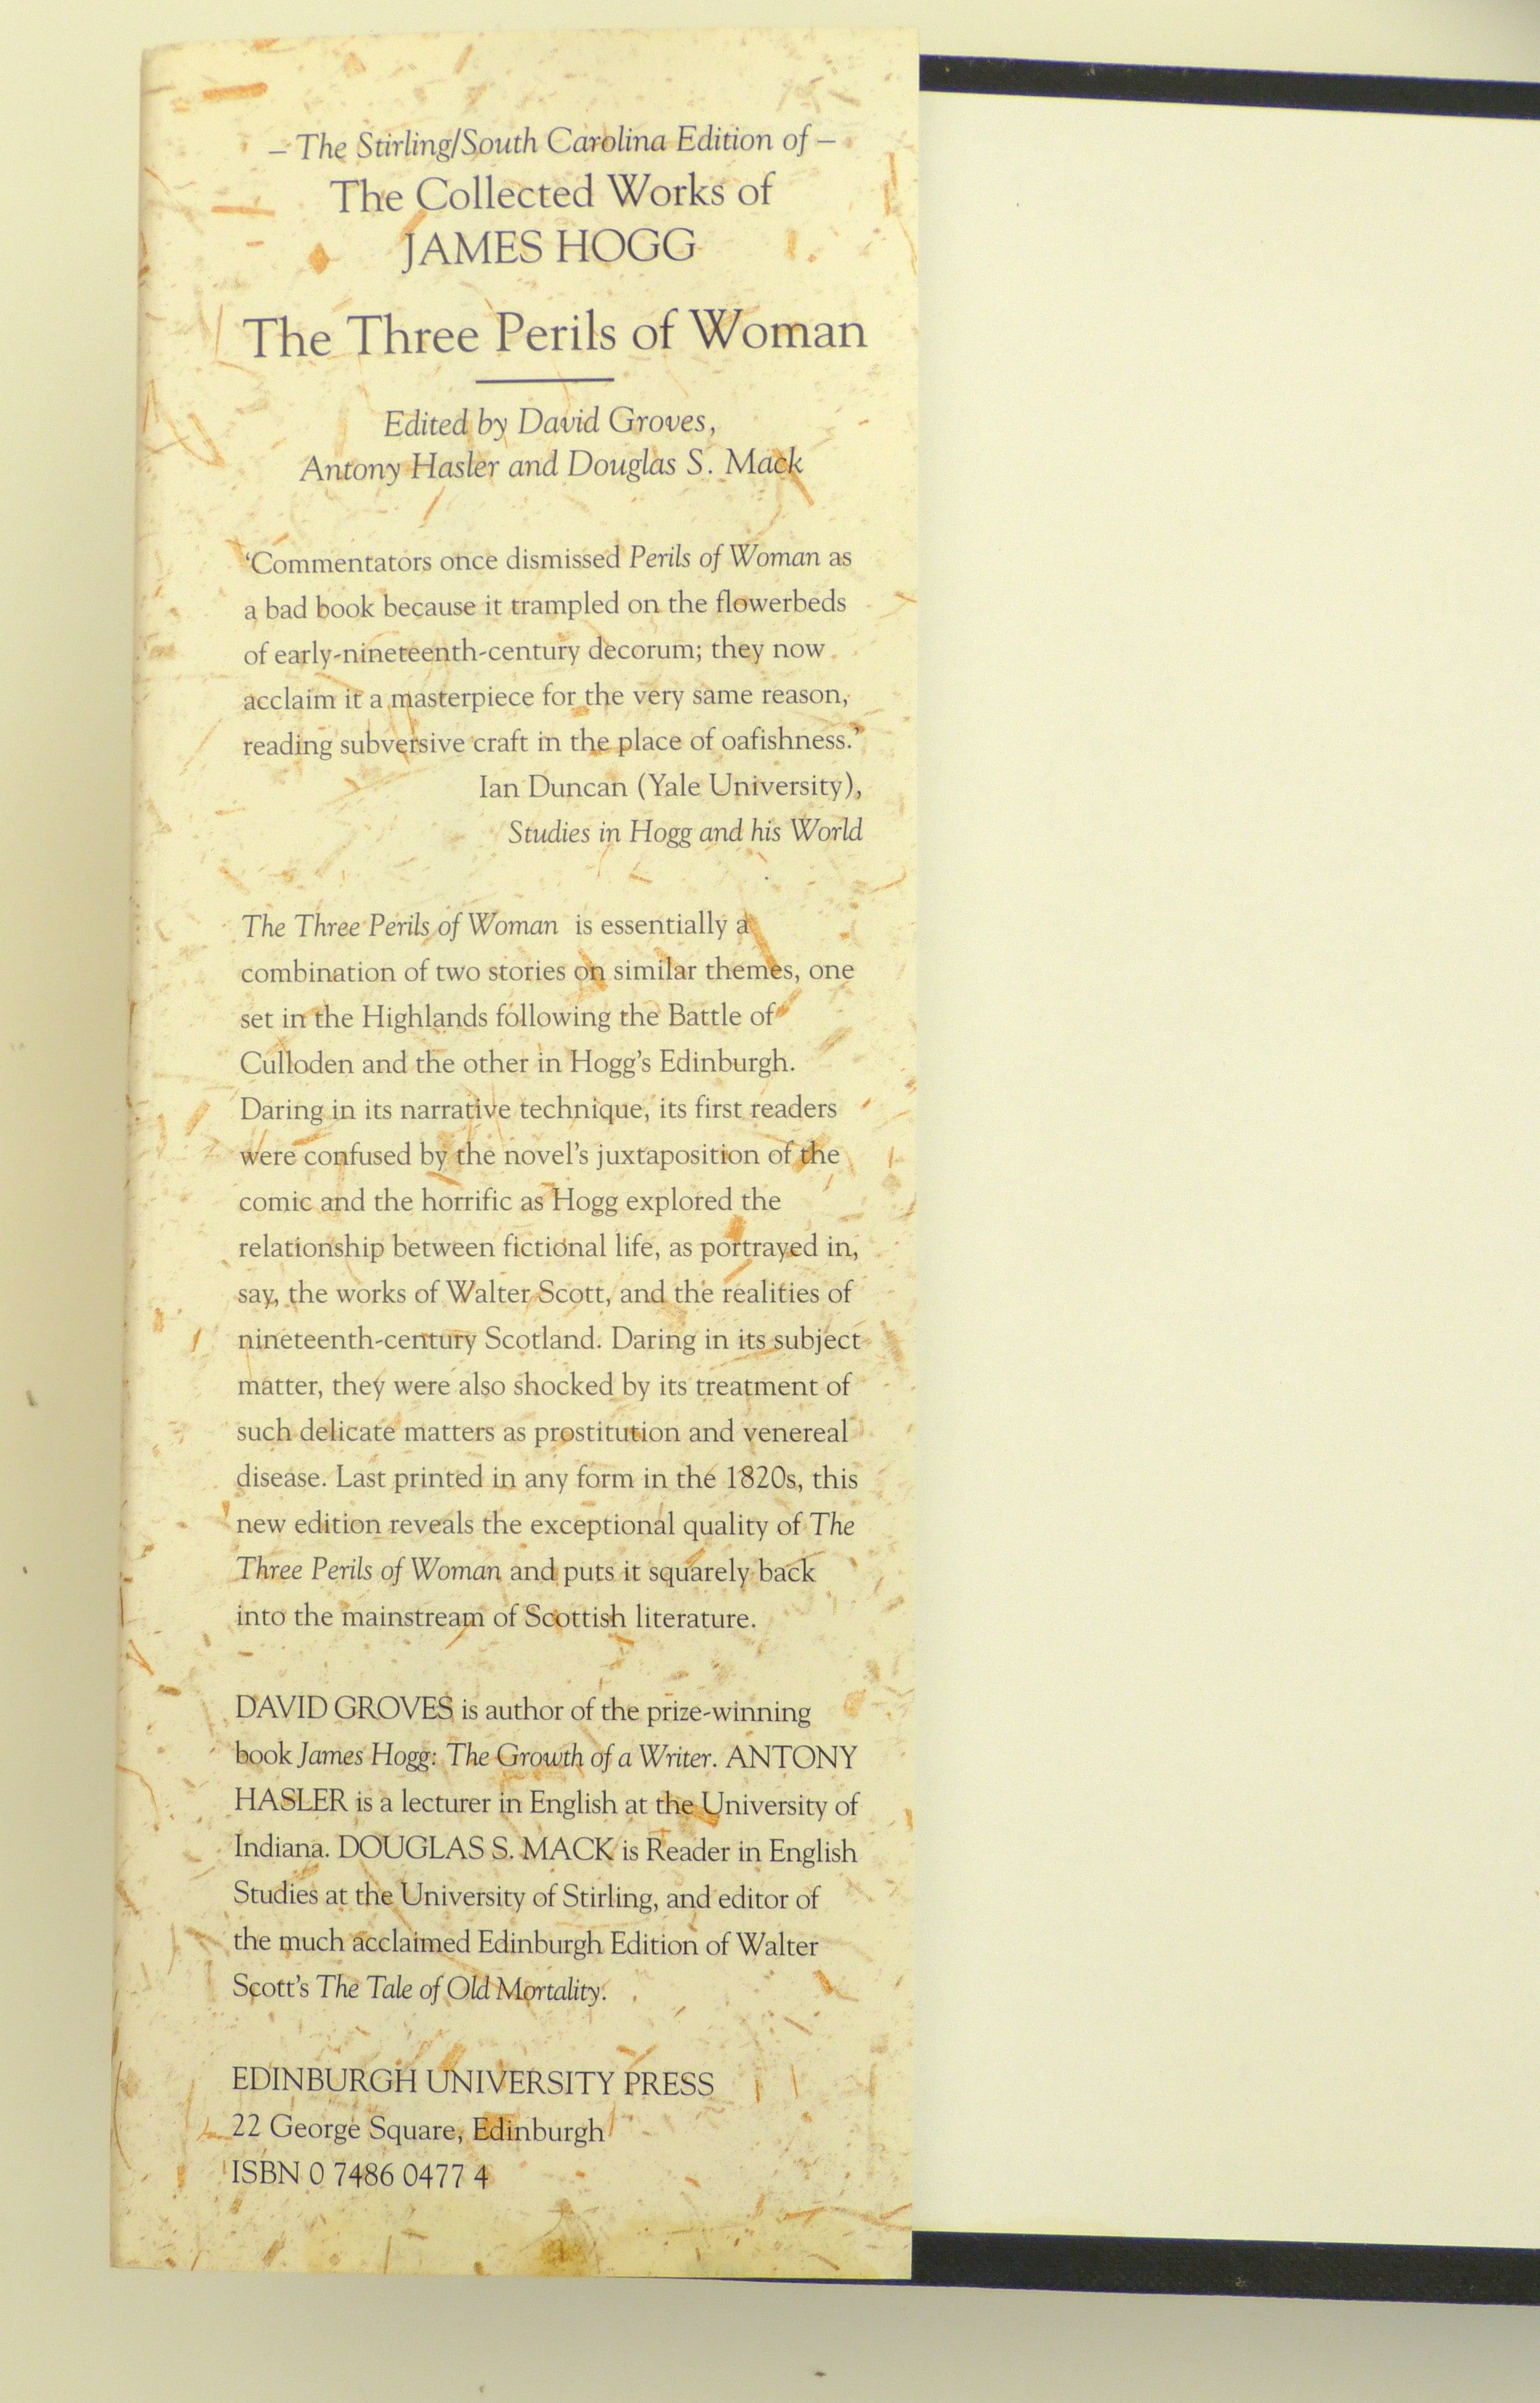 – The Stirling/South Carolina Edition of –
The Collected Works of
JAMES HOGG
The Three Perils of Woman
Edited by David Groves,
Antony Hasler and Douglas S. Mack
‘Commentators once dismissed Perils of Woman as
a bad book because it trampled on the flowerbeds
of early-nineteenth-century decorum; they now
acclaim it a masterpiece for the very same reason,
reading subversive craft in the place of oafishness.’
Ian Duncan (Yale University),
Studies in Hogg and his World
The Three Perils of Woman is essentially a
combination of two stories on similar themes, one
set in the Highlands following the Battle of
Culloden and the other in Hogg’s Edinburgh.
Daring in its narrative technique, its first readers
were confused by the novel’s juxtaposition of the
comic and the horrific as Hogg explored the
relationship between fictional life, as portrayed in,
say, the works of Walter Scott, and the realities of
nineteenth-century Scotland. Daring in its subject
matter, they were also shocked by its treatment of
such delicate matters as prostitution and venereal
disease. Last printed in any form in the 1820s, this
new edition reveals the exceptional quality of The
Three Perils of Woman and puts it squarely back
into the mainstream of Scottish literature.
DAVID GROVES is author of the prize-winning
book James Hogg: The Growth of a Writer. ANTONY
HASLER is a lecturer in English at the University of
Indiana. DOUGLAS S. MACK is Reader in English
Studies at the University of Stirling, and editor of
the much acclaimed Edinburgh Edition of Walter
Scott’s The Tale of Old Mortality.
EDINBURGH UNIVERSITY PRESS
22 George Square, Edinburgh
ISBN 0 7486 0477 4